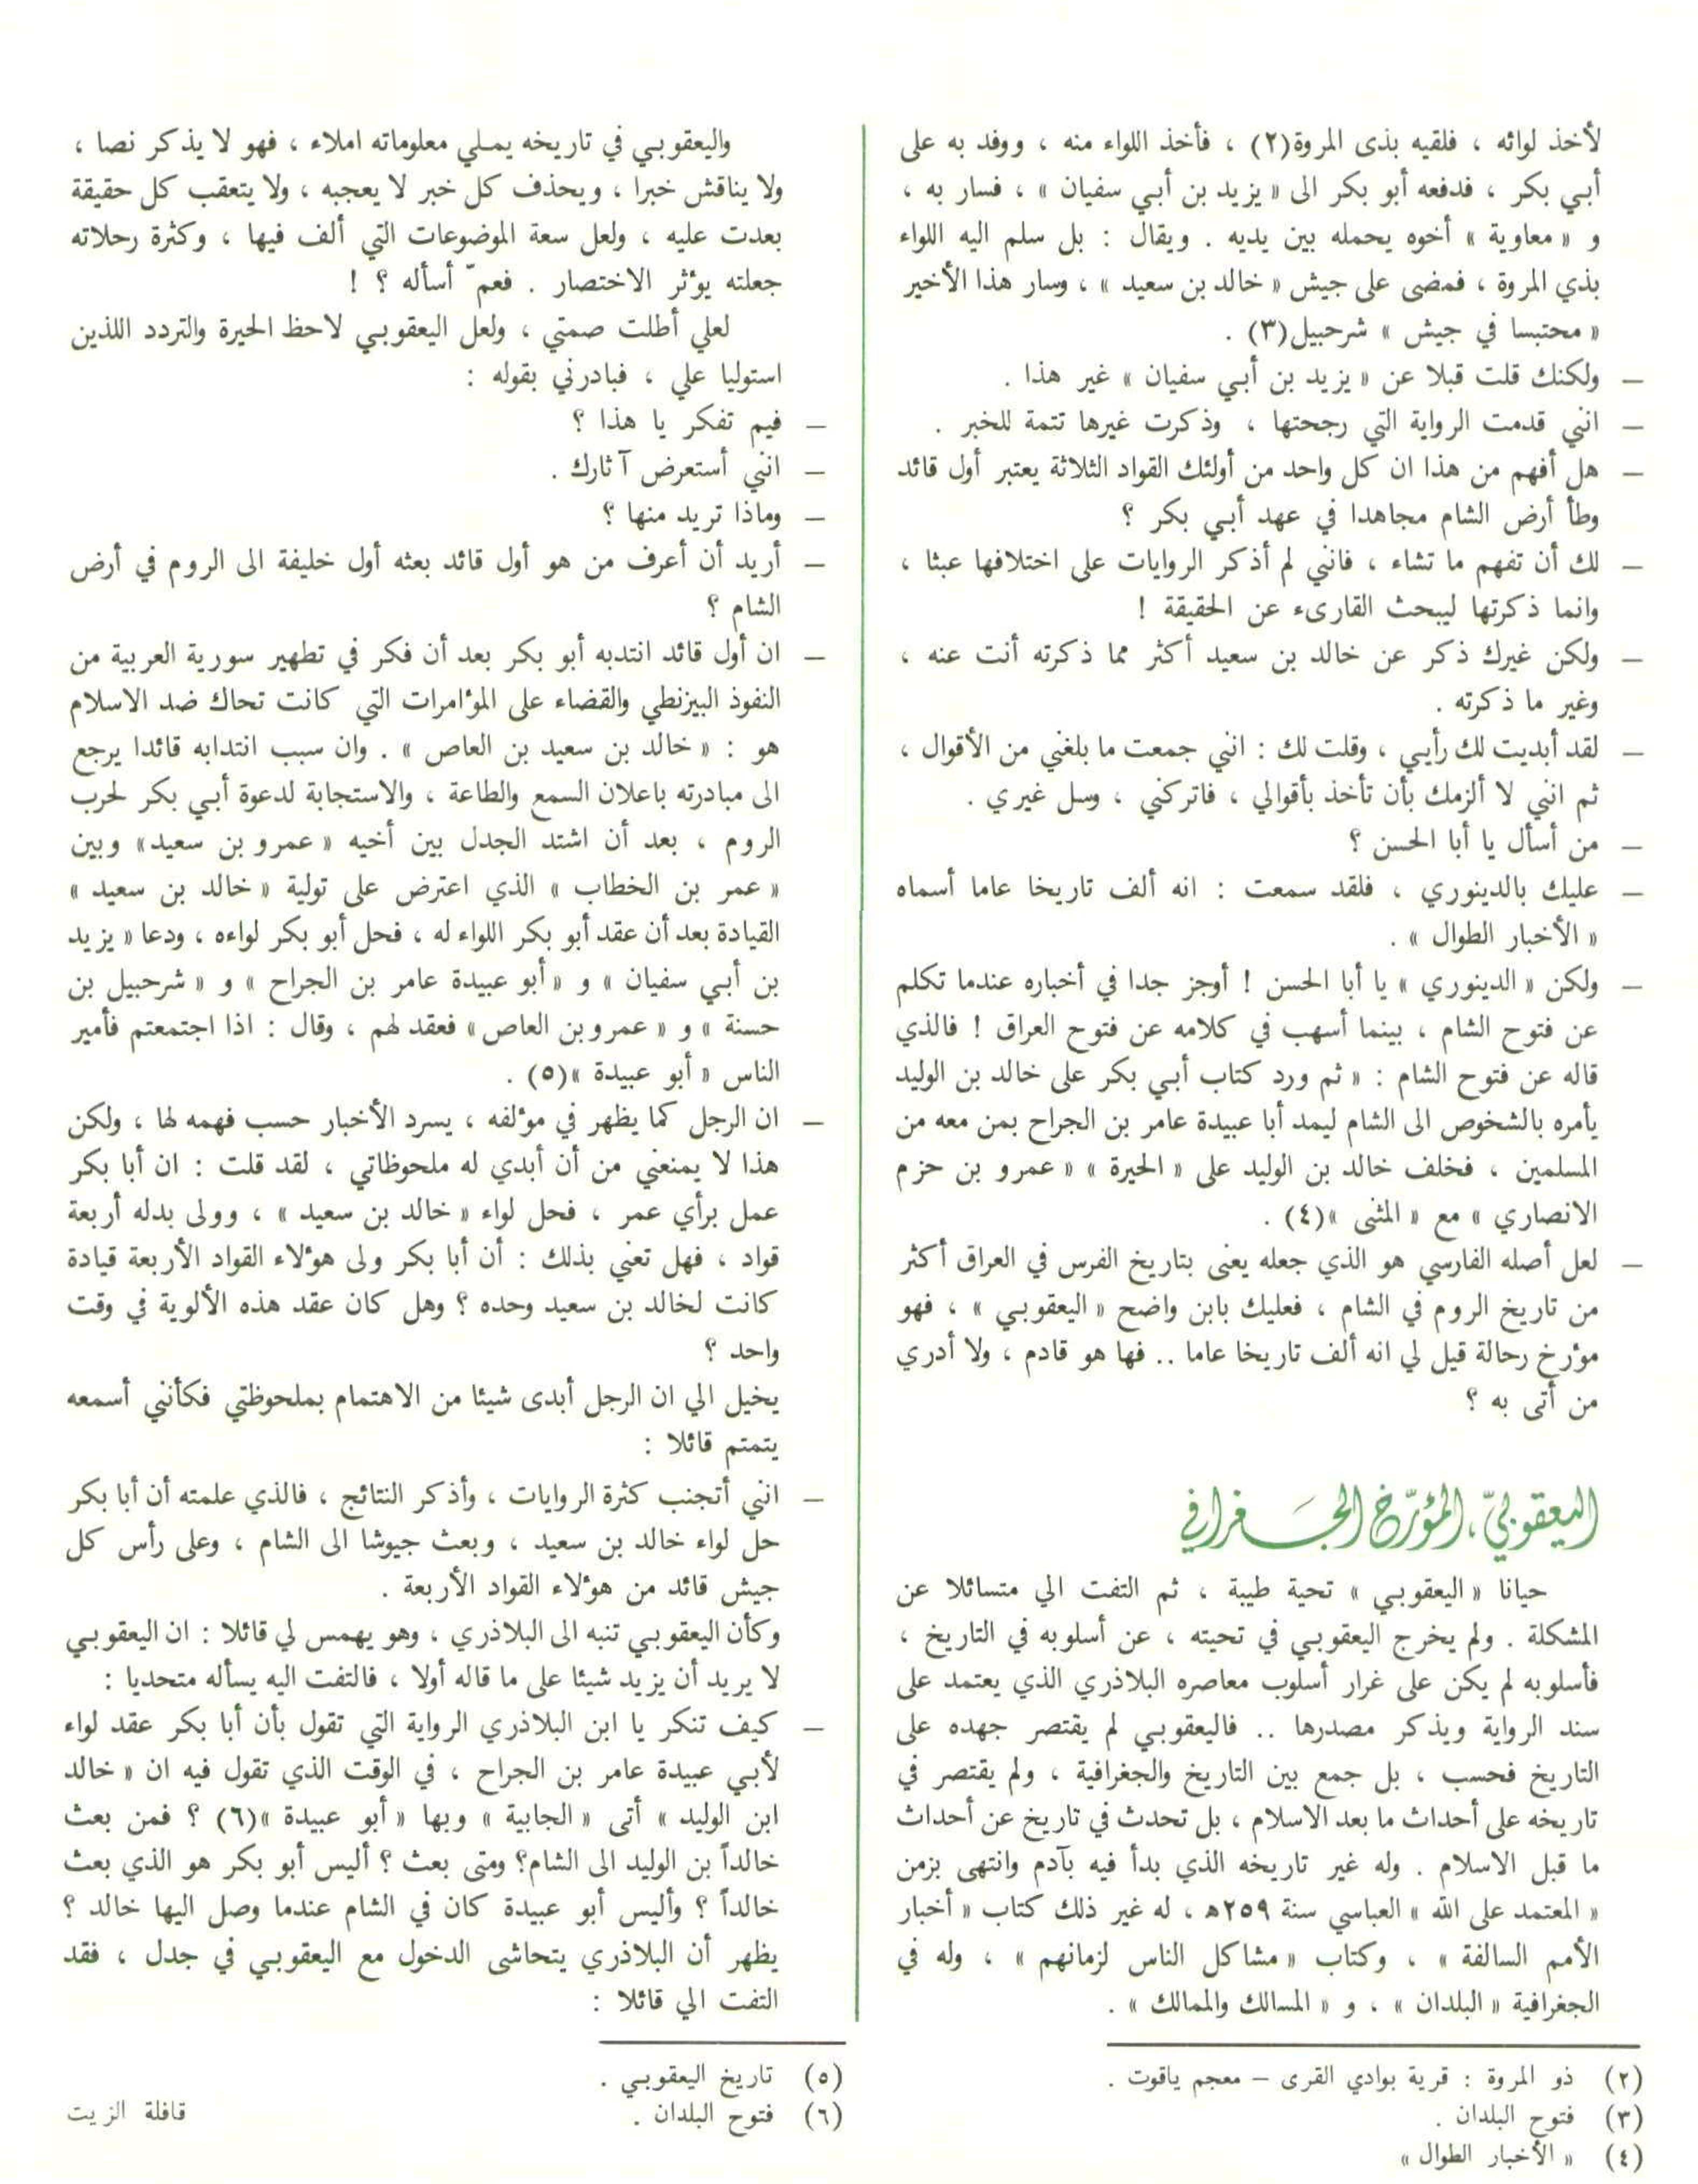 لأخذ لوائه ، فلقيه بذى المروة(٢) ، فأخذ اللواء منه ، ووفد به على
أبي بكر ، فدفعه أبو بكر الى « يزيد بن أبي سفيان » ، فسار به ،
و « معاوية » أخوه يحمله بين يديه . ويقال : بل سلم اليه اللواء
بذي المروة ، فمضى على جيش « خالد بن سعيد » ، وسار هذا الأخير
« محتبسا في جيش » شرحبيل(٣) .
— ولكنك قلت قبلا عن « يزيد بن أبي سفيان » غير هذا .
— انني قدمت الرواية التي رجحتها ، وذكرت غيرها تتمة للخبر .
— هل أفهم من هذا ان كل واحد من أولئك القواد الثلاثة يعتبر أول قائد
وطأ أرض الشام مجاهدا في عهد أبي بكر ؟
— لك أن تفهم ما تشاء ، فانني لم أذكر الروايات على اختلافها عبثا ،
وانما ذكرتها ليبحث القارىء عن الحقيقة !
— ولكن غيرك ذكر عن خالد بن سعيد أكثر مما ذكرته أنت عنه ،
وغير ما ذكرته .
— لقد أبديت لك رأيي ، وقلت لك : انني جمعت ما بلغني من الأقوال ،
ثم انني لا ألزمك بأن تأخذ بأقوالي ، فاتركني ، وسل غيري .
— من أسأل يا أبا الحسن ؟
— عليك بالدينوري ، فلقد سمعت : انه ألف تاريخا عاما أسماه
« الأخبار الطوال » .
— ولكن « الدينوري » يا أبا الحسن ! أوجز جدا في أخباره عندما تكلم
عن فتوح الشام ، بينما أسهب في كلامه عن فتوح العراق ! فالذي
قاله عن فتوح الشام : « ثم ورد كتاب أبي بكر على خالد بن الوليد
يأمره بالشخوص الى الشام ليمد أبا عبيدة عامر بن الجراح بمن معه من
المسلمين ، فخلف خالد بن الوليد على « الحيرة » « عمرو بن حزم
الانصاري » مع « المثنى »(٤) .
— لعل أصله الفارسي هو الذي جعله يعنى بتاريخ الفرس في العراق أكثر
من تاريخ الروم في الشام ، فعليك بابن واضح « اليعقوبي » ، فهو
مؤرخ رحالة قيل لي انه ألف تاريخا عاما .. فها هو قادم ، ولا أدري
من أتى به ؟
اليعقوبيّ ، المؤرّخ الجغرافي
حيانا « اليعقوبي » تحية طيبة ، ثم التفت الي متسائلا عن
المشكلة . ولم يخرج اليعقوبي في تحيته ، عن أسلوبه في التاريخ ،
فأسلوبه لم يكن على غرار أسلوب معاصره البلاذري الذي يعتمد على
سند الرواية ويذكر مصدرها .. فاليعقوبي لم يقتصر جهده على
التاريخ فحسب ، بل جمع بين التاريخ والجغرافية ، ولم يقتصر في
تاريخه على أحداث ما بعد الاسلام ، بل تحدث في تاريخ عن أحداث
ما قبل الاسلام . وله غير تاريخه الذي بدأ فيه بآدم وانتهى بزمن
« المعتمد على الله » العباسي سنة ٢٥٩ه ، له غير ذلك كتاب « أخبار
الأمم السالفة » ، وكتاب « مشاكل الناس لزمانهم » ، وله في
الجغرافية « البلدان » ، و « المسالك والممالك » .
(٢) ذو المروة : قرية بوادي القرى – معجم ياقوت .
(٣) فتوح البلدان .
(٤) « الأخبار الطوال »
واليعقوبي في تاريخه يملي معلوماته املاء ، فهو لا يذكر نصا ،
ولا يناقش خبرا ، ويحذف كل خبر لا يعجبه ، ولا يتعقب كل حقيقة
بعدت عليه ، ولعل سعة الموضوعات التي ألف فيها ، وكثرة رحلاته
جعلته يؤثر الاختصار . فعمّ أسأله ؟ !
لعلي أطلت صمتي ، ولعل اليعقوبي لاحظ الحيرة والتردد اللذين
استوليا علي ، فبادرني بقوله :
— فيم تفكر يا هذا ؟
— انني أستعرض آثارك .
— وماذا تريد منها ؟
— أريد أن أعرف من هو أول قائد بعثه أول خليفة الى الروم في أرض
الشام ؟
— ان أول قائد انتدبه أبو بكر بعد أن فكر في تطهير سورية العربية من
النفوذ البيزنطي والقضاء على المؤامرات التي كانت تحاك ضد الاسلام
هو : « خالد بن سعيد بن العاص » . وان سبب انتدابه قائدا يرجع
الى مبادرته باعلان السمع والطاعة ، والاستجابة لدعوة أبي بكر لحرب
الروم ، بعد أن اشتد الجدل بين أخيه « عمرو بن سعيد» وبين
« عمر بن الخطاب » الذي اعترض على تولية « خالد بن سعيد »
القيادة بعد أن عقد أبو بكر اللواء له ، فحل أبو بكر لواءه ، ودعا « يزيد
بن أبي سفيان » و « أبو عبيدة عامر بن الجراح » و « شرحبيل بن
حسنة » و « عمروبن العاص » فعقد لهم ، وقال : اذا اجتمعتم فأمير
الناس « أبو عبيدة »(٥) .
— ان الرجل كما يظهر في مؤلفه ، يسرد الأخبار حسب فهمه لها ، ولكن
هذا لا يمنعني من أن أبدي له ملحوظاتي ، لقد قلت : ان أبا بكر
عمل برأي عمر ، فحل لواء « خالد بن سعيد » ، وولى بدله أربعة
قواد ، فهل تعني بذلك : أن أبا بكر ولى هؤلاء القواد الأربعة قيادة
كانت لخالد بن سعيد وحده ؟ وهل كان عقد هذه الألوية في وقت
واحد ؟
يخيل الي ان الرجل أبدى شيئا من الاهتمام بملحوظتي فكأنني أسمعه
يتمتم قائلا :
— انني أتجنب كثرة الروايات ، وأذكر النتائج ، فالذي علمته أن أبا بكر
حل لواء خالد بن سعيد ، وبعث جيوشا الى الشام ، وعلى رأس كل
جيش قائد من هؤلاء القواد الأربعة .
وكأن اليعقوبي تنبه الى البلاذري ، وهو يهمس لي قائلا : ان اليعقوبي
لا يريد أن يزيد شيئا على ما قاله أولا ، فالتفت اليه يسأله متحديا :
— كيف تنكر يا ابن البلاذري الرواية التي تقول بأن أبا بكر عقد لواء
لأبي عبيدة عامر بن الجراح ، في الوقت الذي تقول فيه ان « خالد
ابن الوليد » أتى « الجابية » وبها « أبو عبيدة »(٦) ؟ فمن بعث
خالداً بن الوليد الى الشام؟ ومتى بعث ؟ أليس أبو بكر هو الذي بعث
خالداً ؟ وأليس أبو عبيدة كان في الشام عندما وصل اليها خالد ؟
يظهر أن البلاذري يتحاشى الدخول مع اليعقوبي في جدل ، فقد
التفت الي قائلا :
(٥) تاريخ اليعقوبي .
(٦) فتوح البلدان .
قافلة الزيت